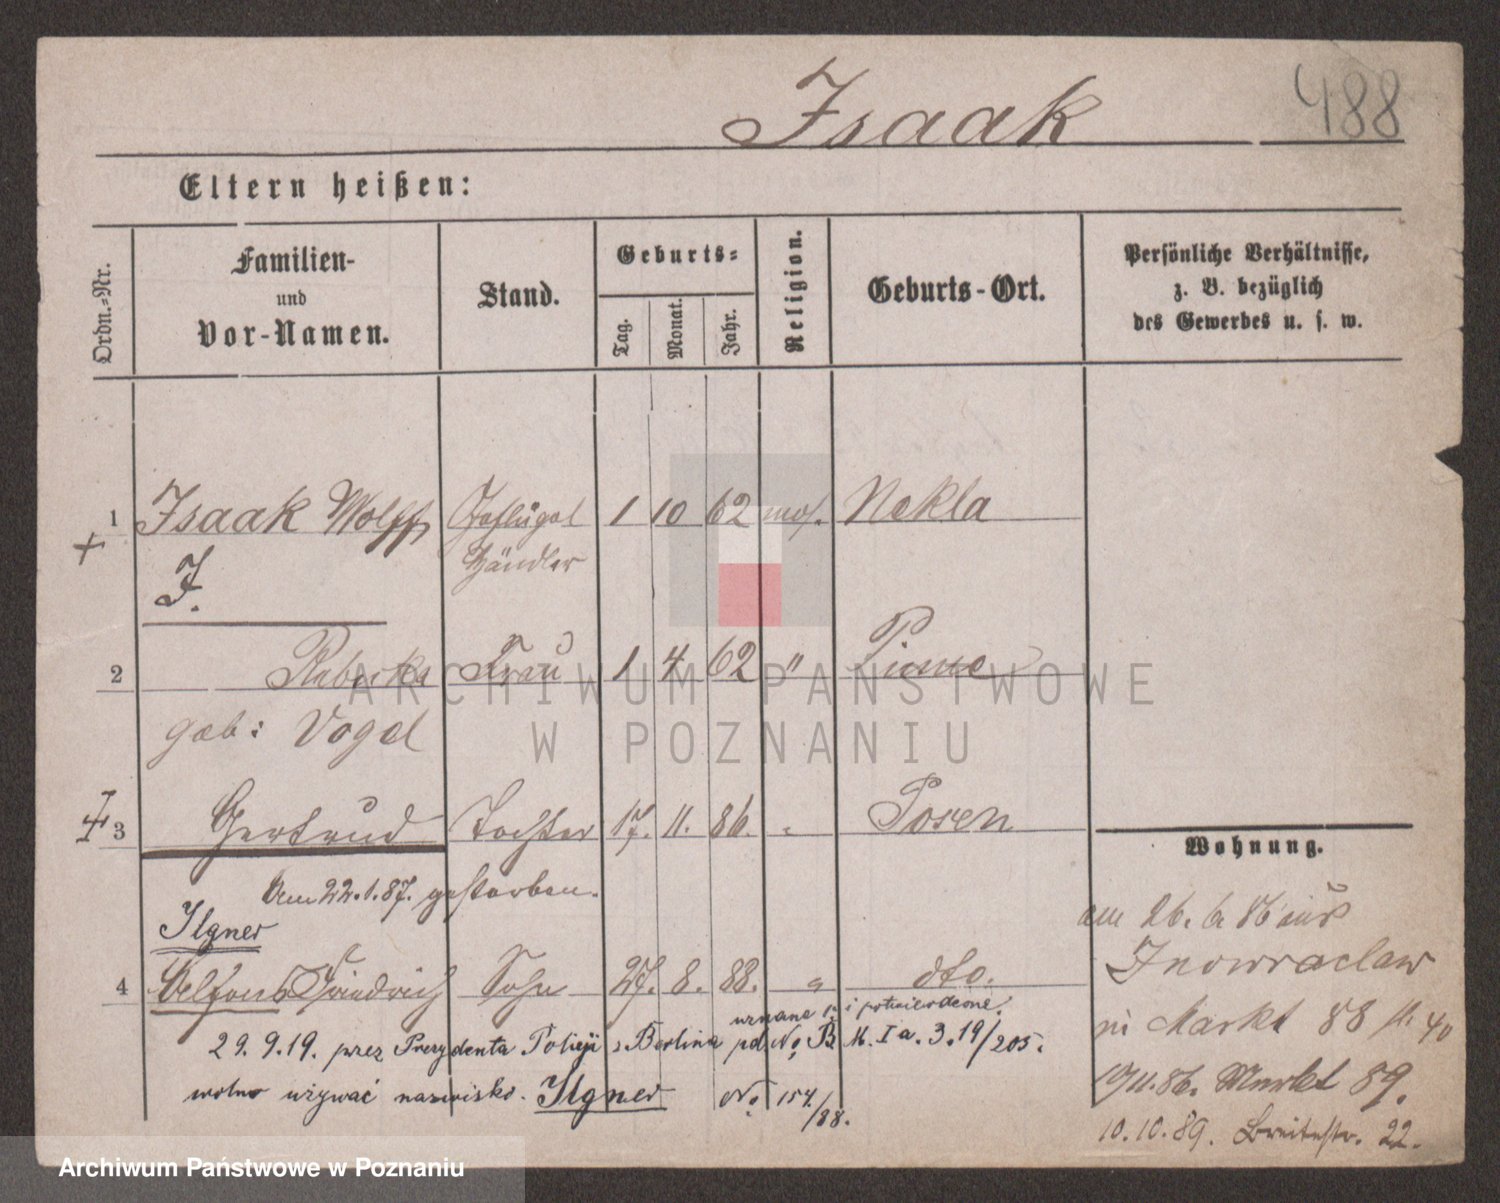 Isaak 488
Eltern heißen:
Ordn.-Nr. Familien- und Vor-Namen. Stand. Geburts- Tag. Monat. Jahr. Religion. Geburts-Ort. Persönliche Verhältnisse, z. B. bezüglich des Gewerbes u. s. w.
1 Isaak Wolff Geflügel 1 10 62 mos. Nekla
+ J. Händler
2 Rebecka Frau 1 4 62 " Pinne
geb: Vogel
3 Gertrud Tochter 17. 11. 86. " Posen
Am 22.1.87. gestorben.
Ilgner
4 Alfons Friedrich Sohn 27. 8. 88. " dto.
uznane i potwierdzone.
29.9.19. przez Prezydenta Policji z Berlina pd No B M. I a. 3.19/205.
wolno używać nazwisko. Ilgner No 154./88.
Wohnung.
am 26. 6. 86 aus
Inowraclaw
Markt 88 40
19/11.86. Markt 89.
10.10.89. Breitestr. 22.
ARCHIWUM PAŃSTWOWE
W POZNANIU
Archiwum Państwowe w Poznaniu